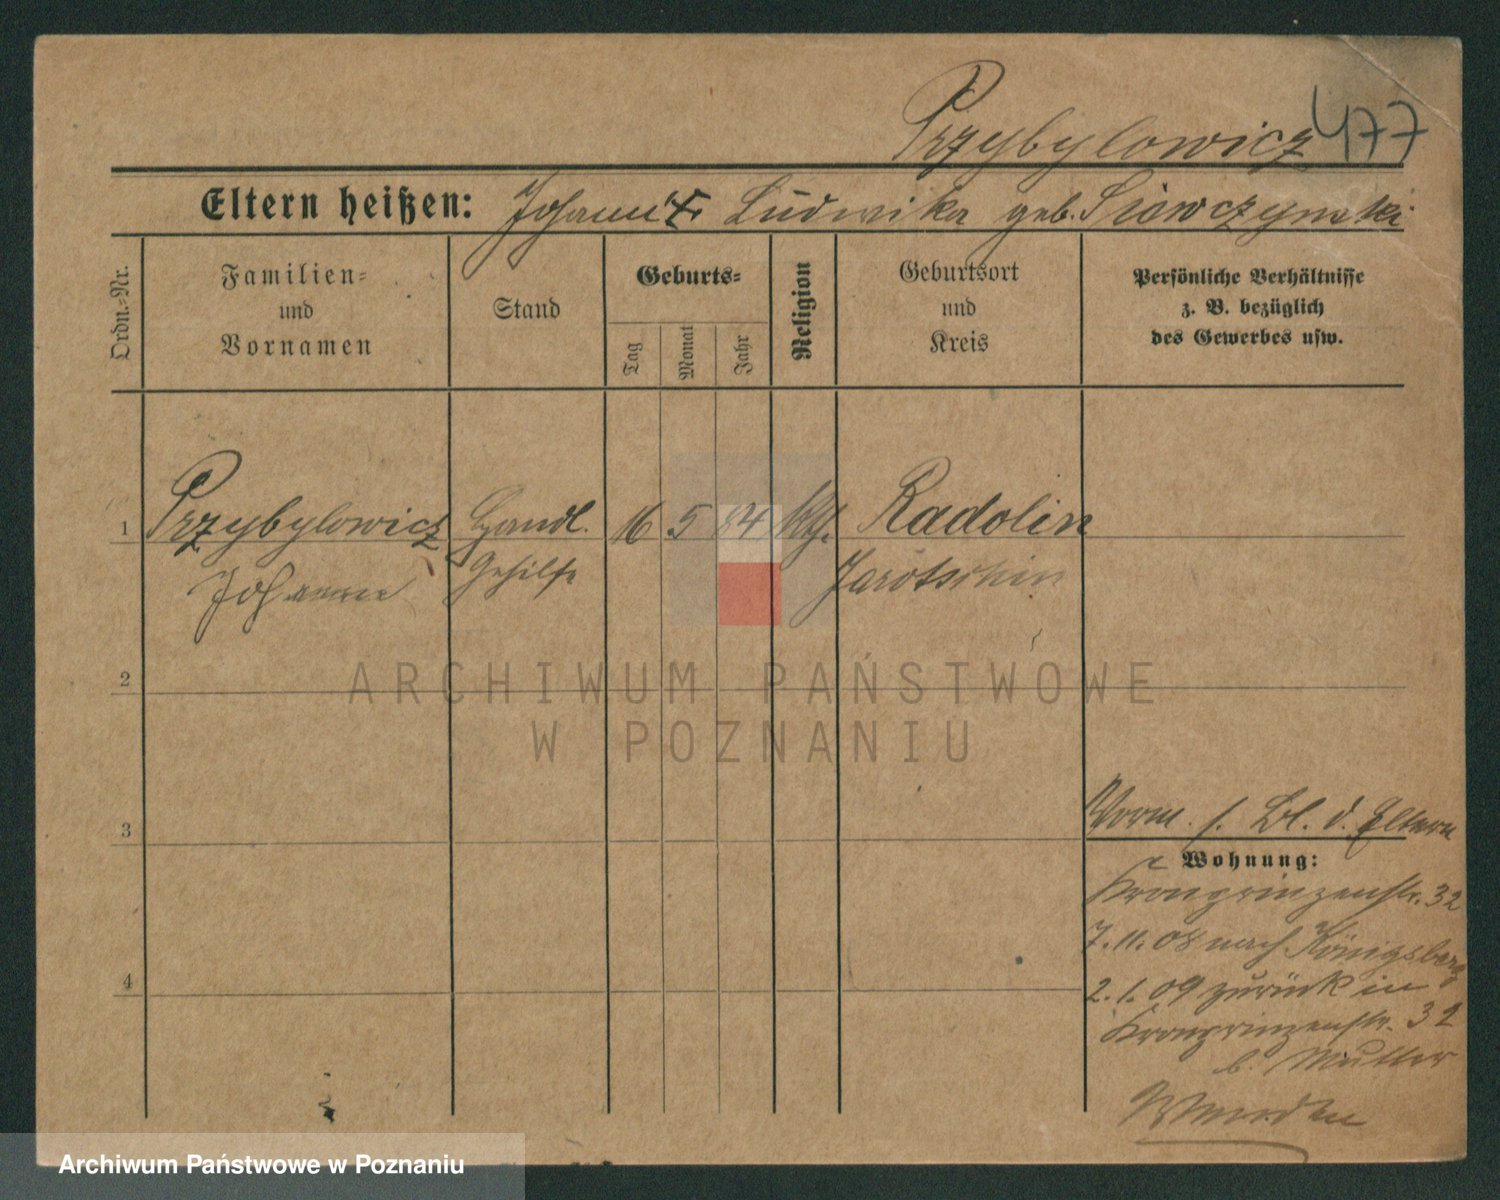 Przybylowicz 477
Eltern heißen: Johann Ludwika geb.
Ordn.-Nr.
Familien-
und
Vornamen
Stand
Geburts-
Tag
Monat
Jahr
Religion
Geburtsort
und
Kreis
Persönliche Verhältnisse
z. B. bezüglich
des Gewerbes usw.
1 Przybylowicz Handl. 16 5 84 kth. Radolin
Johann Gehilfe Jarotschin
2
3
4
Vorm. s. Bl. d. Eltern
Wohnung:
Kronprinzenstr. 32
7.11.08 nach Königsberg
2.1.09 zurück in
Kronprinzenstr. 32
b. Mutter
ARCHIWUM PAŃSTWOWE
W POZNANIU
Archiwum Państwowe w Poznaniu